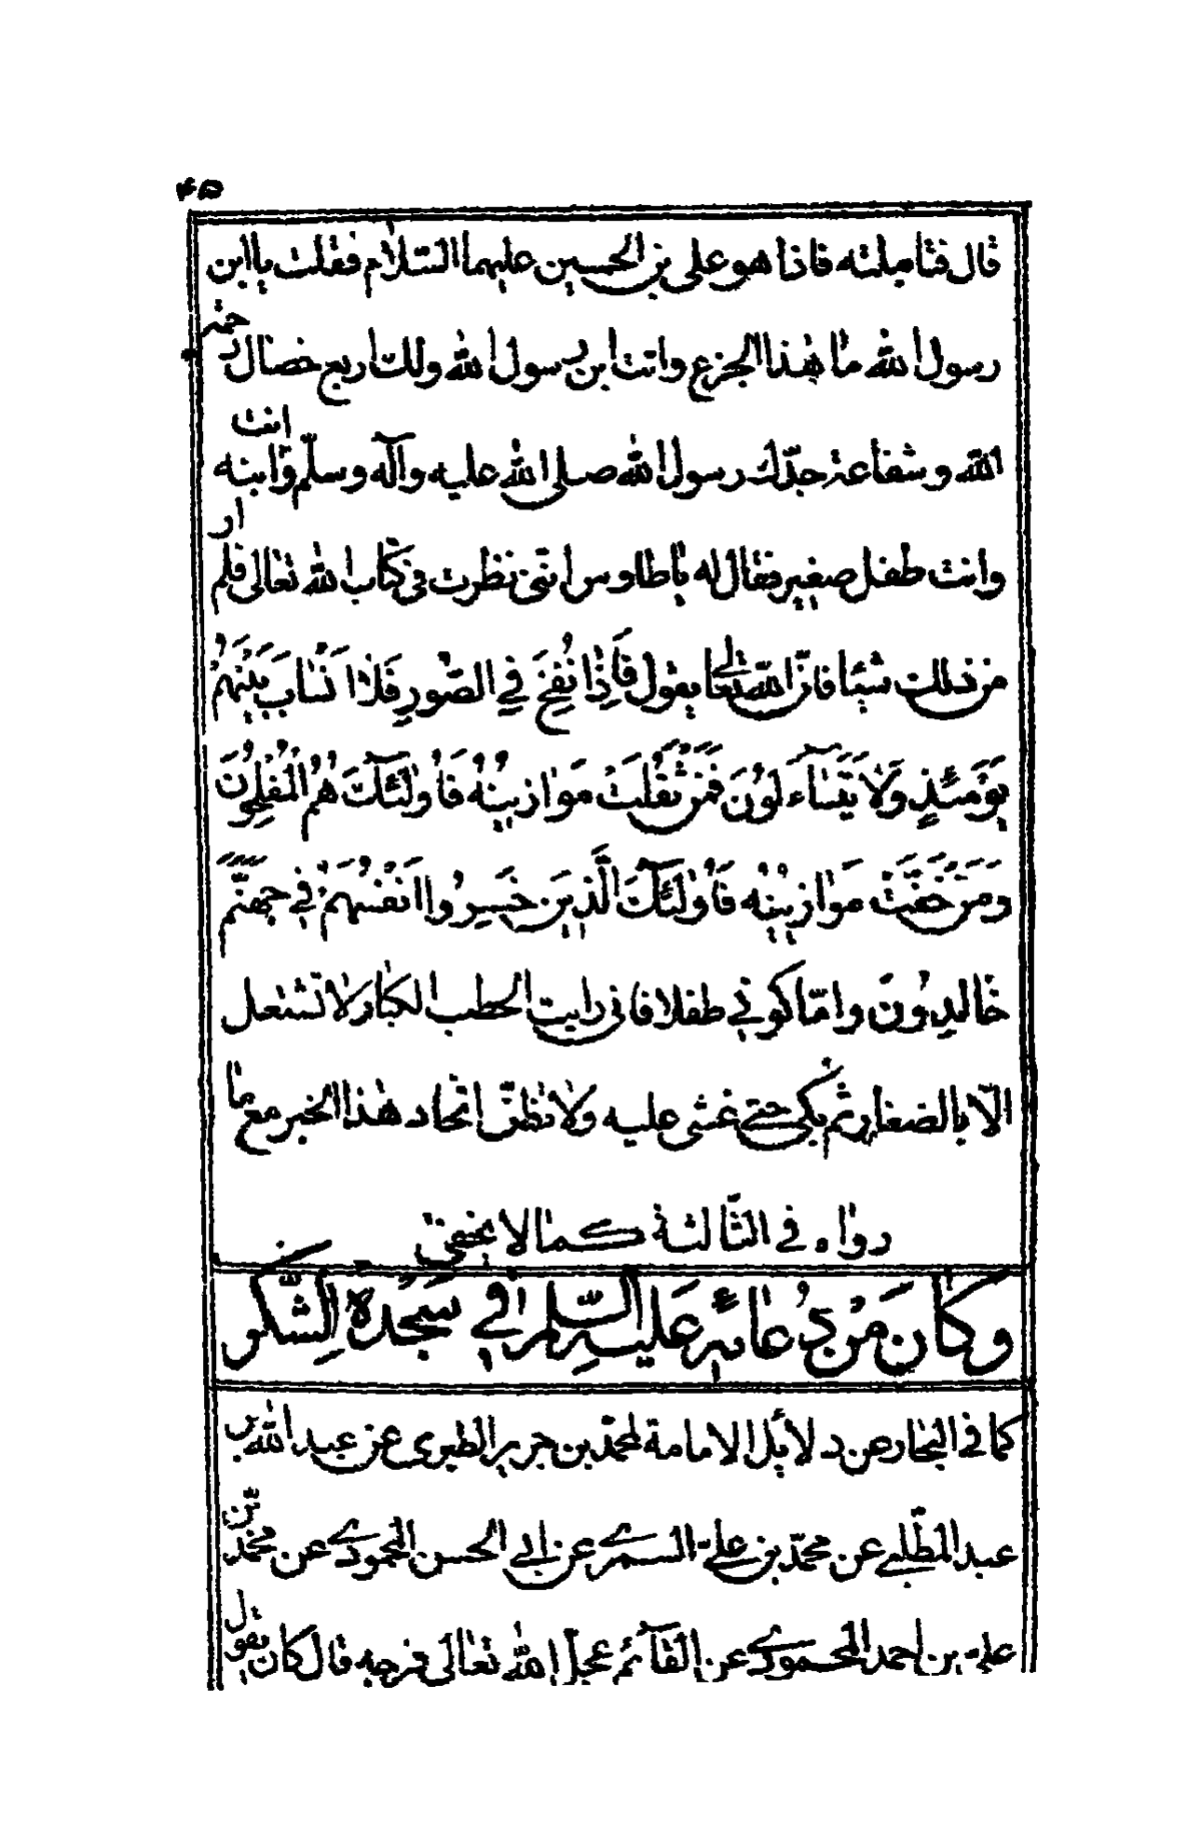 ۴۵
قال فتاملته فاذا هو علی بن الحسین علیهما السّلام فقلت یا ابن
رسول الله ما هذا الجزع وانت ابن رسول الله ولك اربع خصال رحمة
الله وشفاعة جدّك رسول الله صلی الله علیه وآله وسلّم وانت ابنه
وانت طفل صغیر فقال له یا طاوس اننّی نظرت فی کتاب الله تعالی فلم ار
من ذلك شیئا فانّ الله تعالی یقول فَاِذٰا نُفِخَ فِي الصُّورِ فَلاٰ اَنْسٰابَ بَیْنَهُمْ
یَوْمَئِذٍ وَلاٰ یَتَسٰاۤءَلُونَ فَمَنْ ثَقُلَتْ مَوٰازِینُهُ فَاُولٰۤئِكَ هُمُ الْمُفْلِحُونَ
وَمَنْ خَفَّتْ مَوٰازِینُهُ فَاُولٰۤئِكَ الَّذِینَ خَسِرُوا اَنْفُسَهُمْ فِي جَهَنَّمَ
خٰالِدُونَ وامّا کونی طفلا فانی رایت الحطب الکبار لا تشتعل
الّا بالصغار ثم بکی حتی غشی علیه ولا تظنّ اتّحاد هذا الخبر مع ما
رواه فی الثّالثة کما لا یخفی
وَکٰانَ مِنْ دُعٰائِهِ عَلَیْهِ السَّلٰمُ فِي سَجْدَةِ الشُّكْرِ
کما فی البحار عن دلائل الامامة لمحمّد بن جریر الطبری عن عبد الله بن
عبد المطّلب عن محمّد بن علیّ السمری عن ابی الحسن المحمودی عن محمّد بن
علیّ بن احمد المحمودی عن القآئم عجل الله تعالی فرجه قال کان یقول